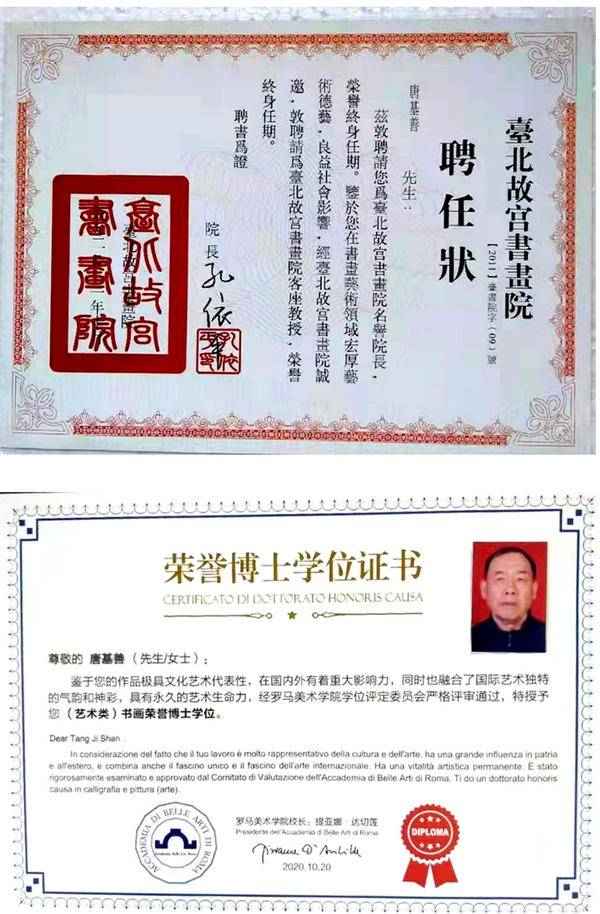 臺北故宮書畫院
聘任狀
【2011】臺書院字（09）號
唐基善 先生：
茲敦聘請您爲臺北故宮書畫院名譽院長，
榮譽終身任期。鑒於您在書畫藝術領域宏厚藝
術德藝，良益社會影響，經臺北故宮書畫院誠
邀，敦聘請爲臺北故宮書畫院客座教授，榮譽
終身任期。
聘書爲證
院長
臺北故宮
書畫院
荣誉博士学位证书
CERTIFICATO DI DOTTORATO HONORIS CAUSA
尊敬的 唐基善（先生/女士）：
鉴于您的作品极具文化艺术代表性，在国内外有着重大影响力，同时也融合了国际艺术独特
的气韵和神彩，具有永久的艺术生命力，经罗马美术学院学位评定委员会严格评审通过，特授予
您（艺术类）书画荣誉博士学位。
Dear Tang Ji Shan :
In considerazione del fatto che il tuo lavoro è molto rappresentativo della cultura e dell'arte, ha una grande influenza in patria
e all'estero, e combina anche il fascino unico e il fascino dell'arte internazionale. Ha una vitalità artistica permanente. È stato
rigorosamente esaminato e approvato dal Comitato di Valutazione dell'Accademia di Belle Arti di Roma. Ti do un dottorato honoris
causa in calligrafia e pittura (arte).
ACCADEMIA DI BELLE ARTI DI ROMA
罗马美术学院校长：缇亚娜·达切莲
Presidente dell'Accademia di Belle Arti di Roma
2020.10.20
DIPLOMA